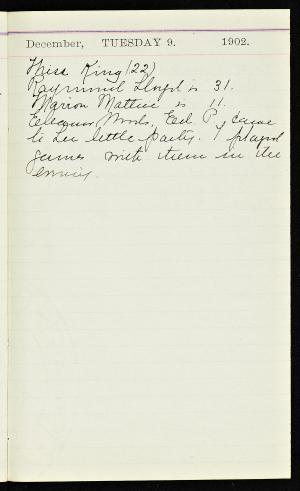 December, TUESDAY 9. 1902.
Miss King (22)
Raymond Lloyd is 31.
Marion Mattice is 11.
Eleanor Woods, Ed P. came
to Lee little party. I played
games with them in the
evening.